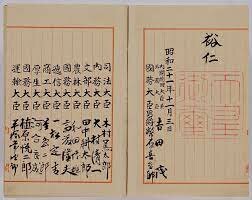 裕仁
天皇御璽
昭和二十一年十一月三日
内閣總理大臣兼
外務大臣 吉田茂
國務大臣 男爵 幣原喜重郎
司法大臣 木村篤太郎
内務大臣 大村清一
文部大臣 田中耕太郎
農林大臣
國務大臣 齋藤隆夫
遞信大臣 一松定吉
商工大臣 星島二郎
厚生大臣 河合良成
國務大臣 植原悦二郎
運輸大臣 平塚常次郎